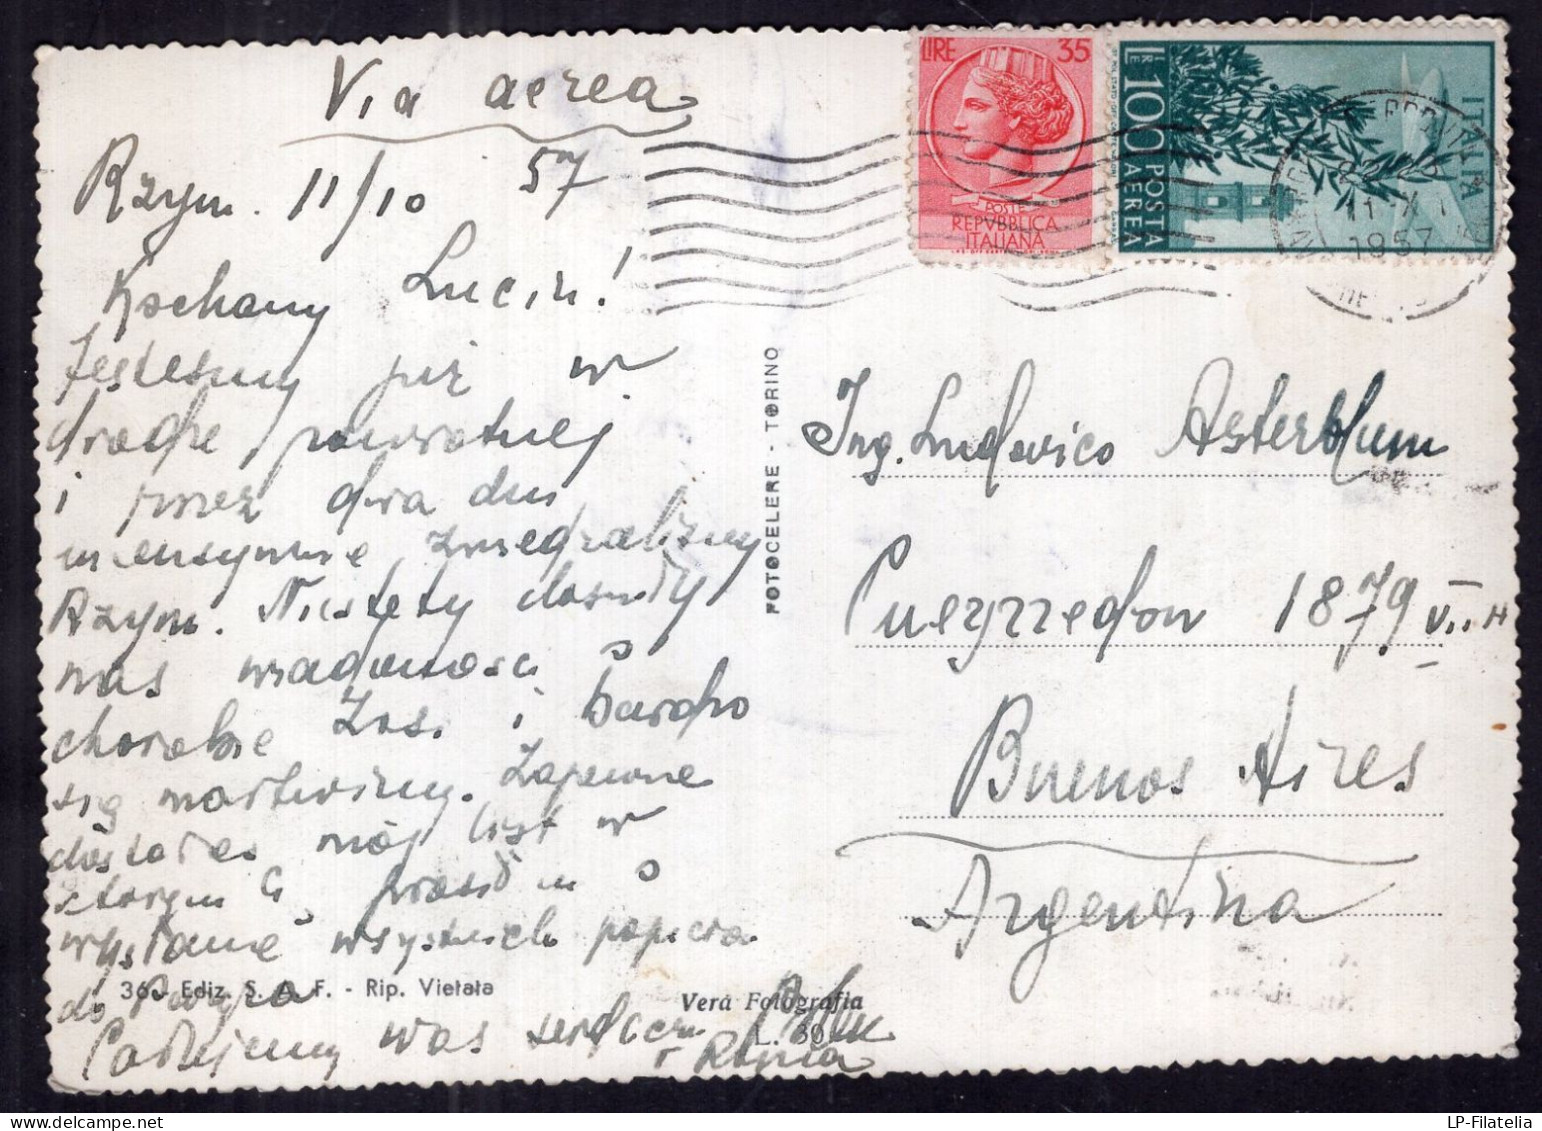 Via aerea
Rzym. 11/10 57
Kochany Lucin!
Jesteśmy już w
drodze powrotnej
i przez dwa dni
intensywnie zwiedzaliśmy
Rzym. Niestety doszły
nas wiadomości o
chorobie Zosi i bardzo
się martwimy. Zapewne
dostałeś mój list w
którym Cię prosiłem o
wysłanie wszystkich papierów
do Paryża
Całujemy Was serdecznie
LIRE 35
POSTE
REPVBBLICA
ITALIANA
LIRE 100 POSTA
AEREA
ITALIA
11 X
1957
FOTOCELERE - TORINO
Ing. Ludovico Asterblum
Pueyrredon 1879
Buenos Aires
Argentina
Ediz. S. A. F. - Rip. Vietata
Vera Fotografia
LP-Filatelia